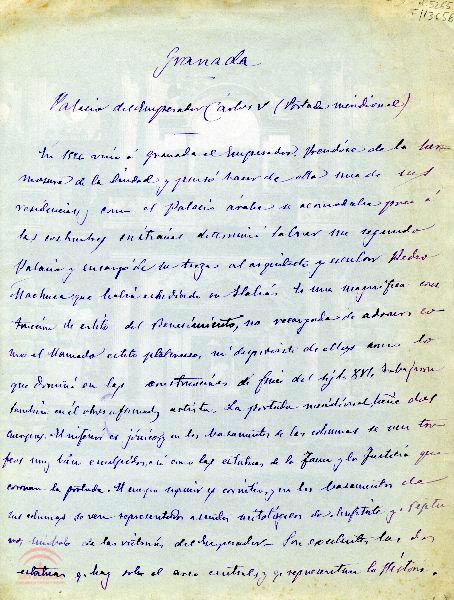 5265
F113656
Granada
Palacio del Emperador Cárlos V (Portada meridional)
En 1526 vino á Granada el Emperador. Prendóse de la her-
mosura de la Ciudad y pensó hacer de ella una de sus
residencias; como el Palacio árabe se acomodaba poco á
las costumbres cristianas determinó labrar un segundo
Palacio y encargó de su traza al arquitecto y escultor Pedro
Machuca que había estudiado en Italia. Es una magnífica cons
trucción de estilo del Renacimiento, no recargada de adornos co-
mo el llamado estilo plateresco, ni desprovista de ellos como lo
que dominó en las construcciones de fines del siglo XVI. Trabajaron
también en él otros afamados artistas. La portada meridional, tiene dos
cuerpos. El inferior es jónico, y en los basamentos de las columnas se ven tro-
feos muy bien esculpidos, así como las estatuas de la Fama y la Justicia que
coronan la portada. El cuerpo superior es corintio, y en los basamentos de
sus columnas se ven representados asuntos mitológicos de y Neptu
no, símbolo de las victorias del Emperador. Son excelentes las dos
estatuas q. hay sobre el arco central, y q. representan la Historia.